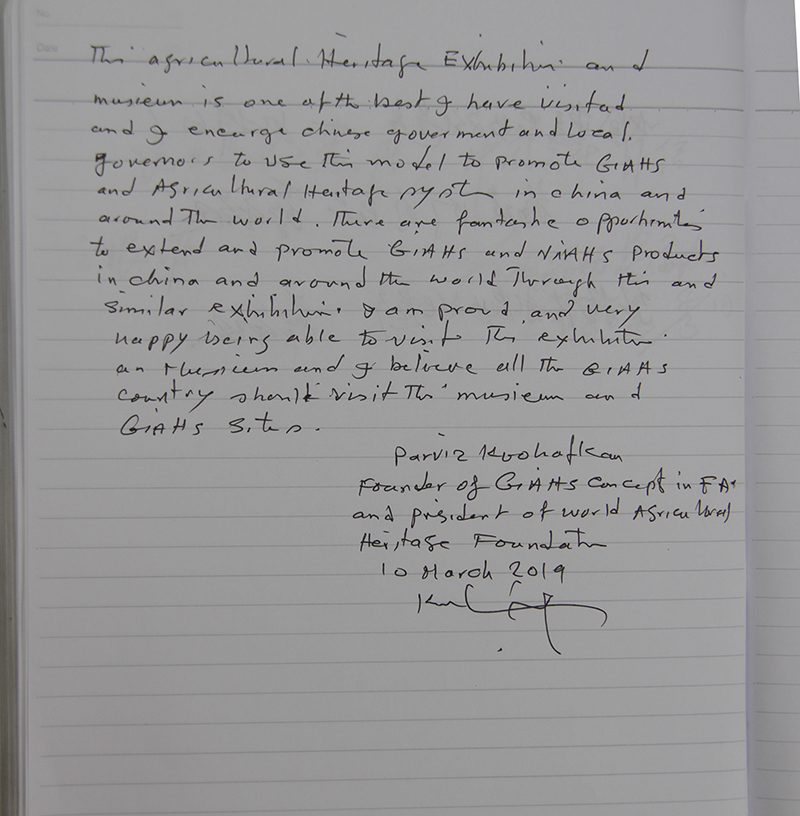 No.
Date
This agricultural Heritage Exhibition and
musieum is one of the best I have visited
and I encurge chinese goverment and Local
governors to use this model to promote GIAHS
and Agricultural Heritage system in china and
around The world. There are fantashc opportunities
to extend and promote GIAHS and NIAHS Products
in china and around the world Through this and
similar exhibition. I am proud and very
happy being able to visit This exhibition
an Musieum and I believe all the GIAHS
country should visit This musieum and
GIAHS Sites.
Parviz Koohafkan
Founder of GIAHS Concept in FAO
and president of world Agricultural
Heritage Foundation
10 March 2019